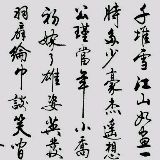 千堆雪江山如畫一
時多少豪傑遙想
公瑾當年小喬
初嫁了雄姿英發
羽扇綸巾談笑間